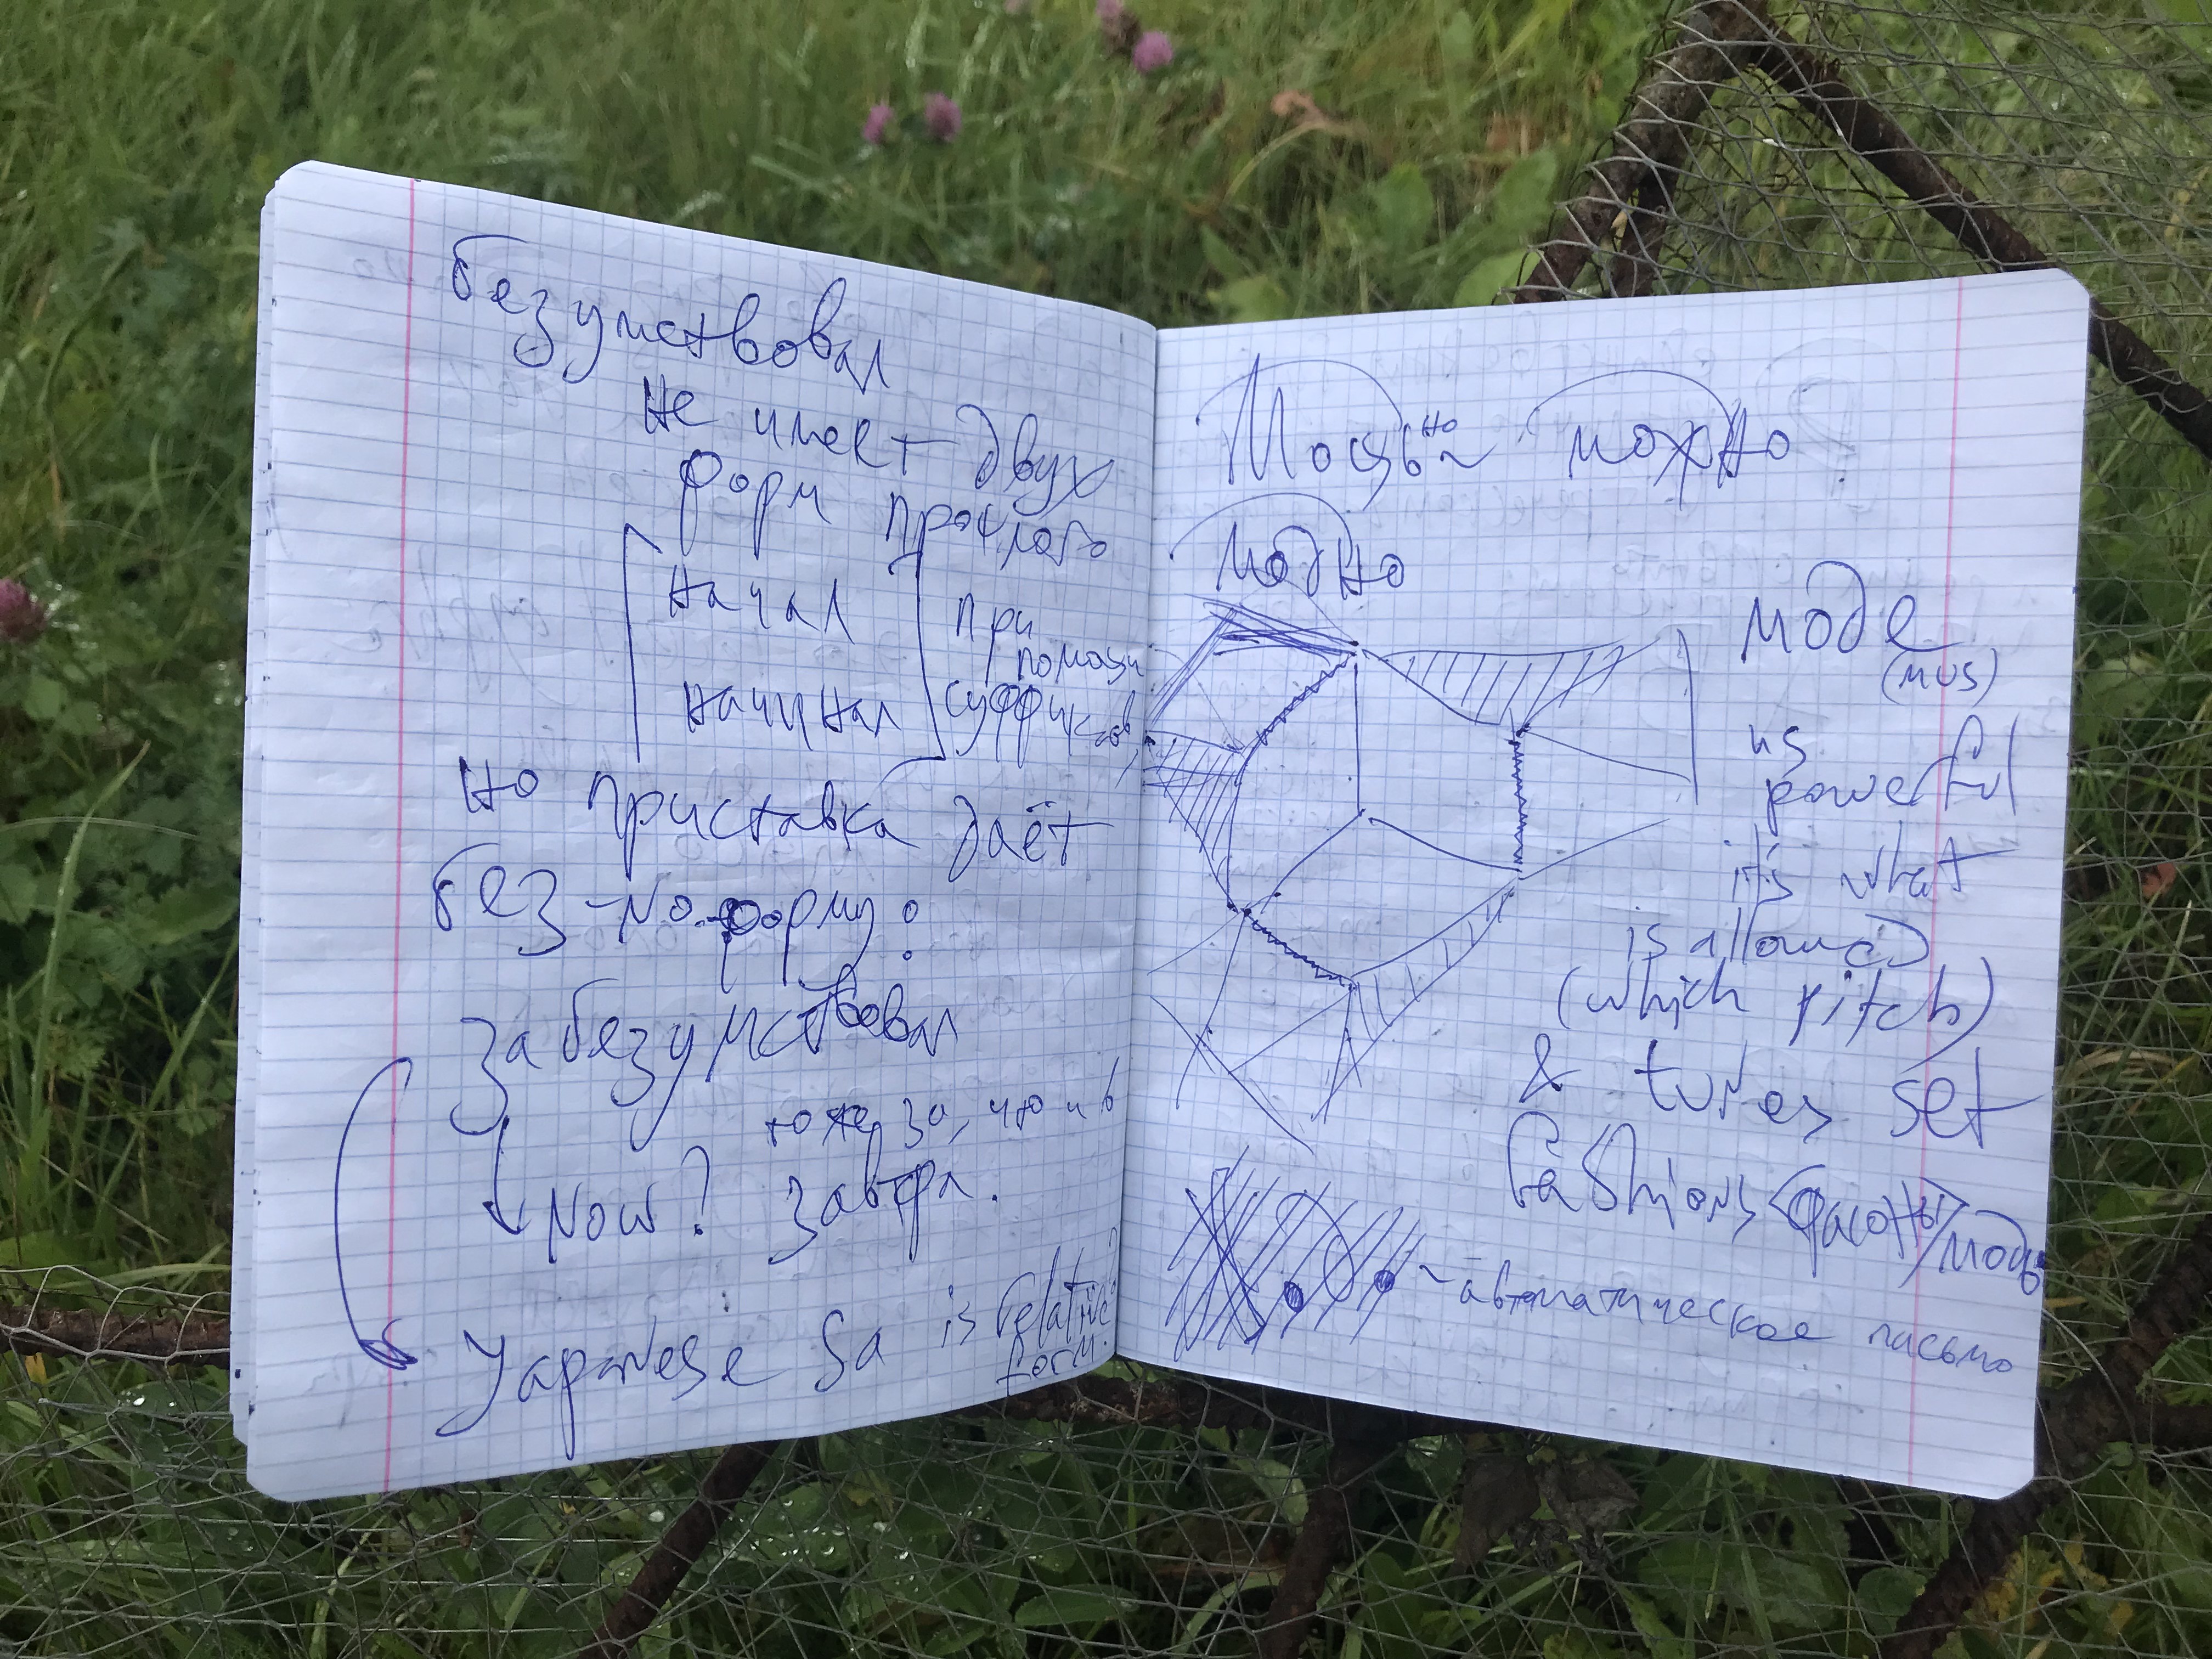 безумствовал
не имеет двух
форм прошлого
начал
при
помощи
начинал
суффиксов,
но приставка даёт
без-no-форму:
забезумствовал
то же за, что и в
Now? завтра.
Japanese Sa is relative?
form.
Мощьно можно
модно
mode
(mus)
is
powerful
it's what
is allowed
(which pitch)
& tunes set
fashions (фасоны/моды
~автоматическое письмо